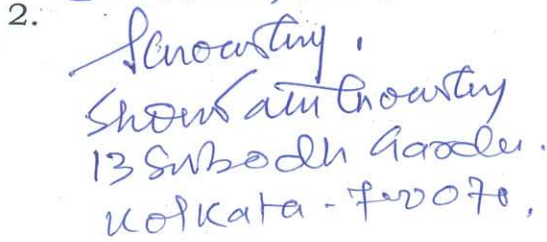 2.
Schowdhry.
Chowdhry
13 Subodh Garden.
Kolkata - 700070,